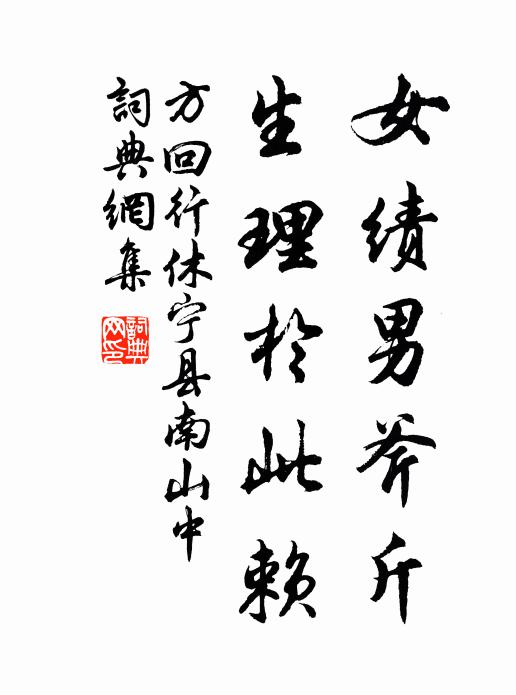 女绩男斧斤
生理於此赖
方回行休宁县南山中
詞典網集
詞典
网印